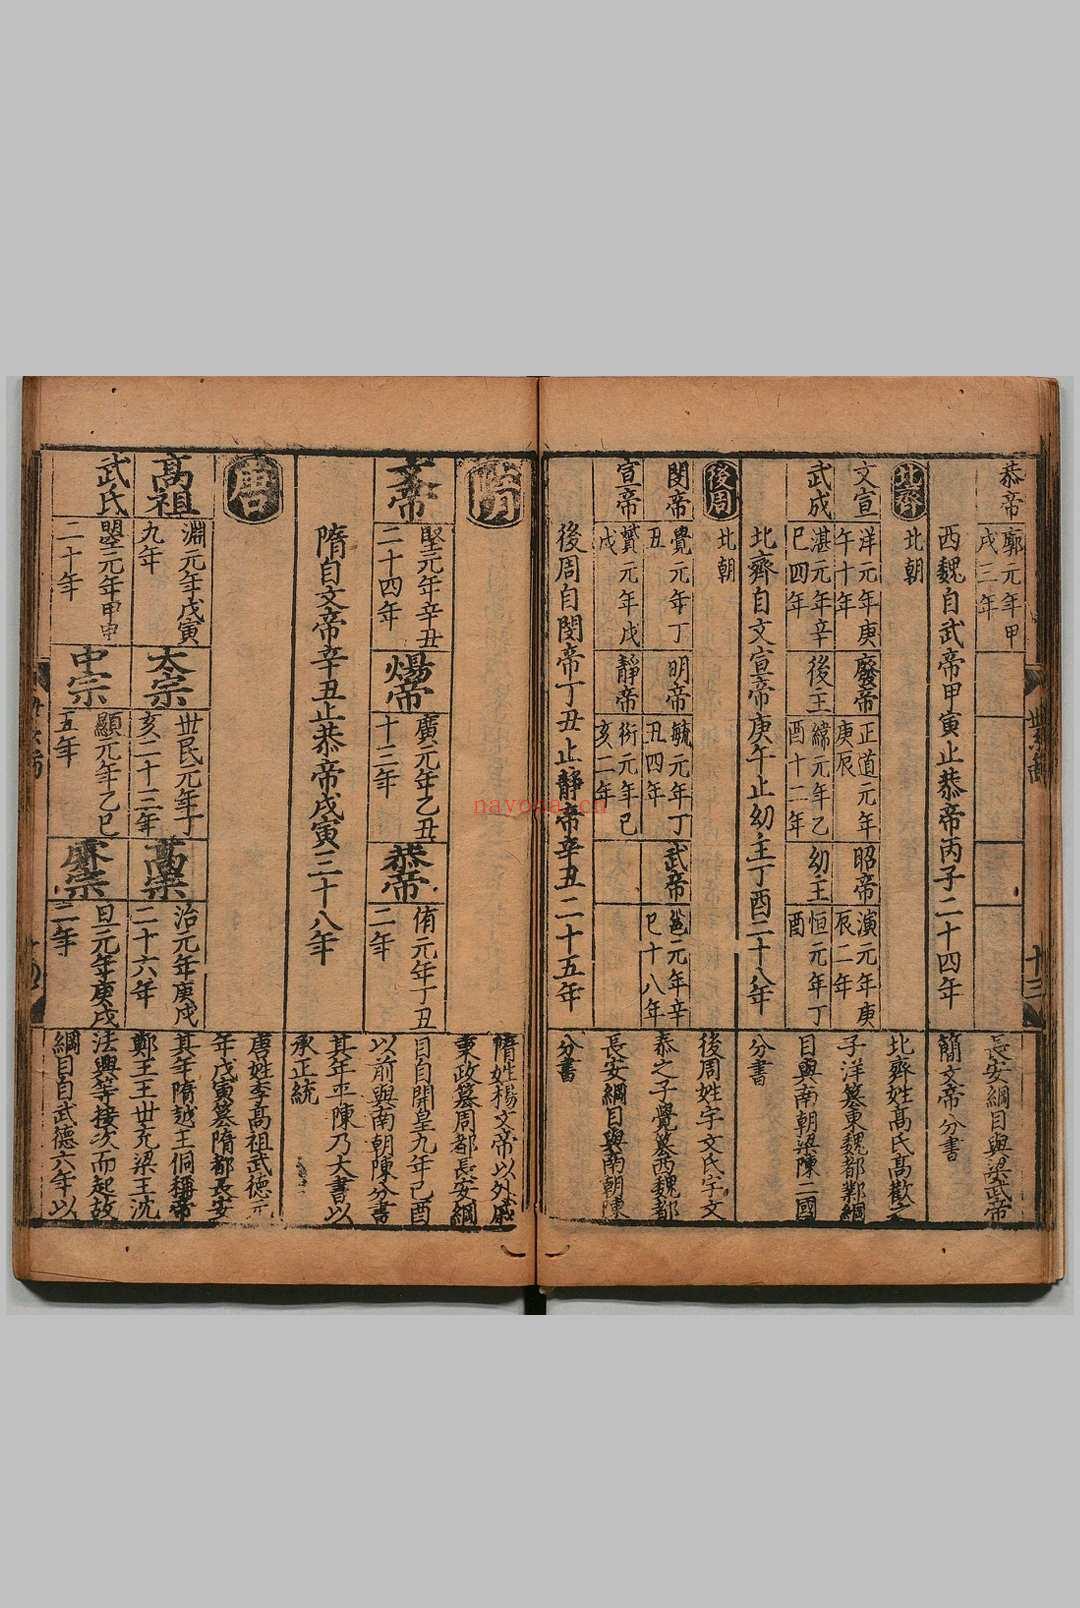 恭帝
廓元年甲
戌三年
西魏自武帝甲寅止恭帝丙子二十四年
長安綱目與梁武帝
簡文帝分書
北齊
北朝
文宣
洋元年庚
午十年
廢帝
正道元年
庚辰
昭帝
演元年庚
辰二年
武成
湛元年辛
巳四年
後主
緯元年乙
酉十二年
幼主
恒元年丁
酉
北齊自文宣帝庚午止幼主丁酉二十八年
北齊姓高氏高歡之
子洋篡東魏都鄴綱
目與南朝梁陳二國
分書
後周
北朝
閔帝
覺元年丁
丑
明帝
毓元年丁
丑四年
武帝
邕元年辛
巳十八年
宣帝
贇元年戊
戌
靜帝
衍元年巳
亥二年
後周自閔帝丁丑止靜帝辛丑二十五年
後周姓宇文氏宇文
泰之子覺篡西魏都
長安綱目與南朝陳
分書
世系
十三
隋
文帝
堅元年辛丑
二十四年
煬帝
廣元年乙丑
十三年
恭帝
侑元年丁丑
二年
隋自文帝辛丑止恭帝戊寅三十八年
隋姓楊文帝以外戚
秉政篡周都長安綱
目自開皇九年己酉
以前與南朝陳分書
其年平陳乃大書以
承正統
唐
高祖
淵元年戊寅
九年
太宗
世民元年丁
亥二十三年
高宗
治元年庚戌
二十六年
武氏
曌元年甲申
二十年
中宗
顯元年乙巳
五年
睿宗
旦元年庚戌
二年
唐姓李高祖武德元
年戊寅篡隋都長安
其年隋越王侗稱帝
鄭王王世充梁王沈
法興等接次而起故
綱目自武德六年以
nayona.cn